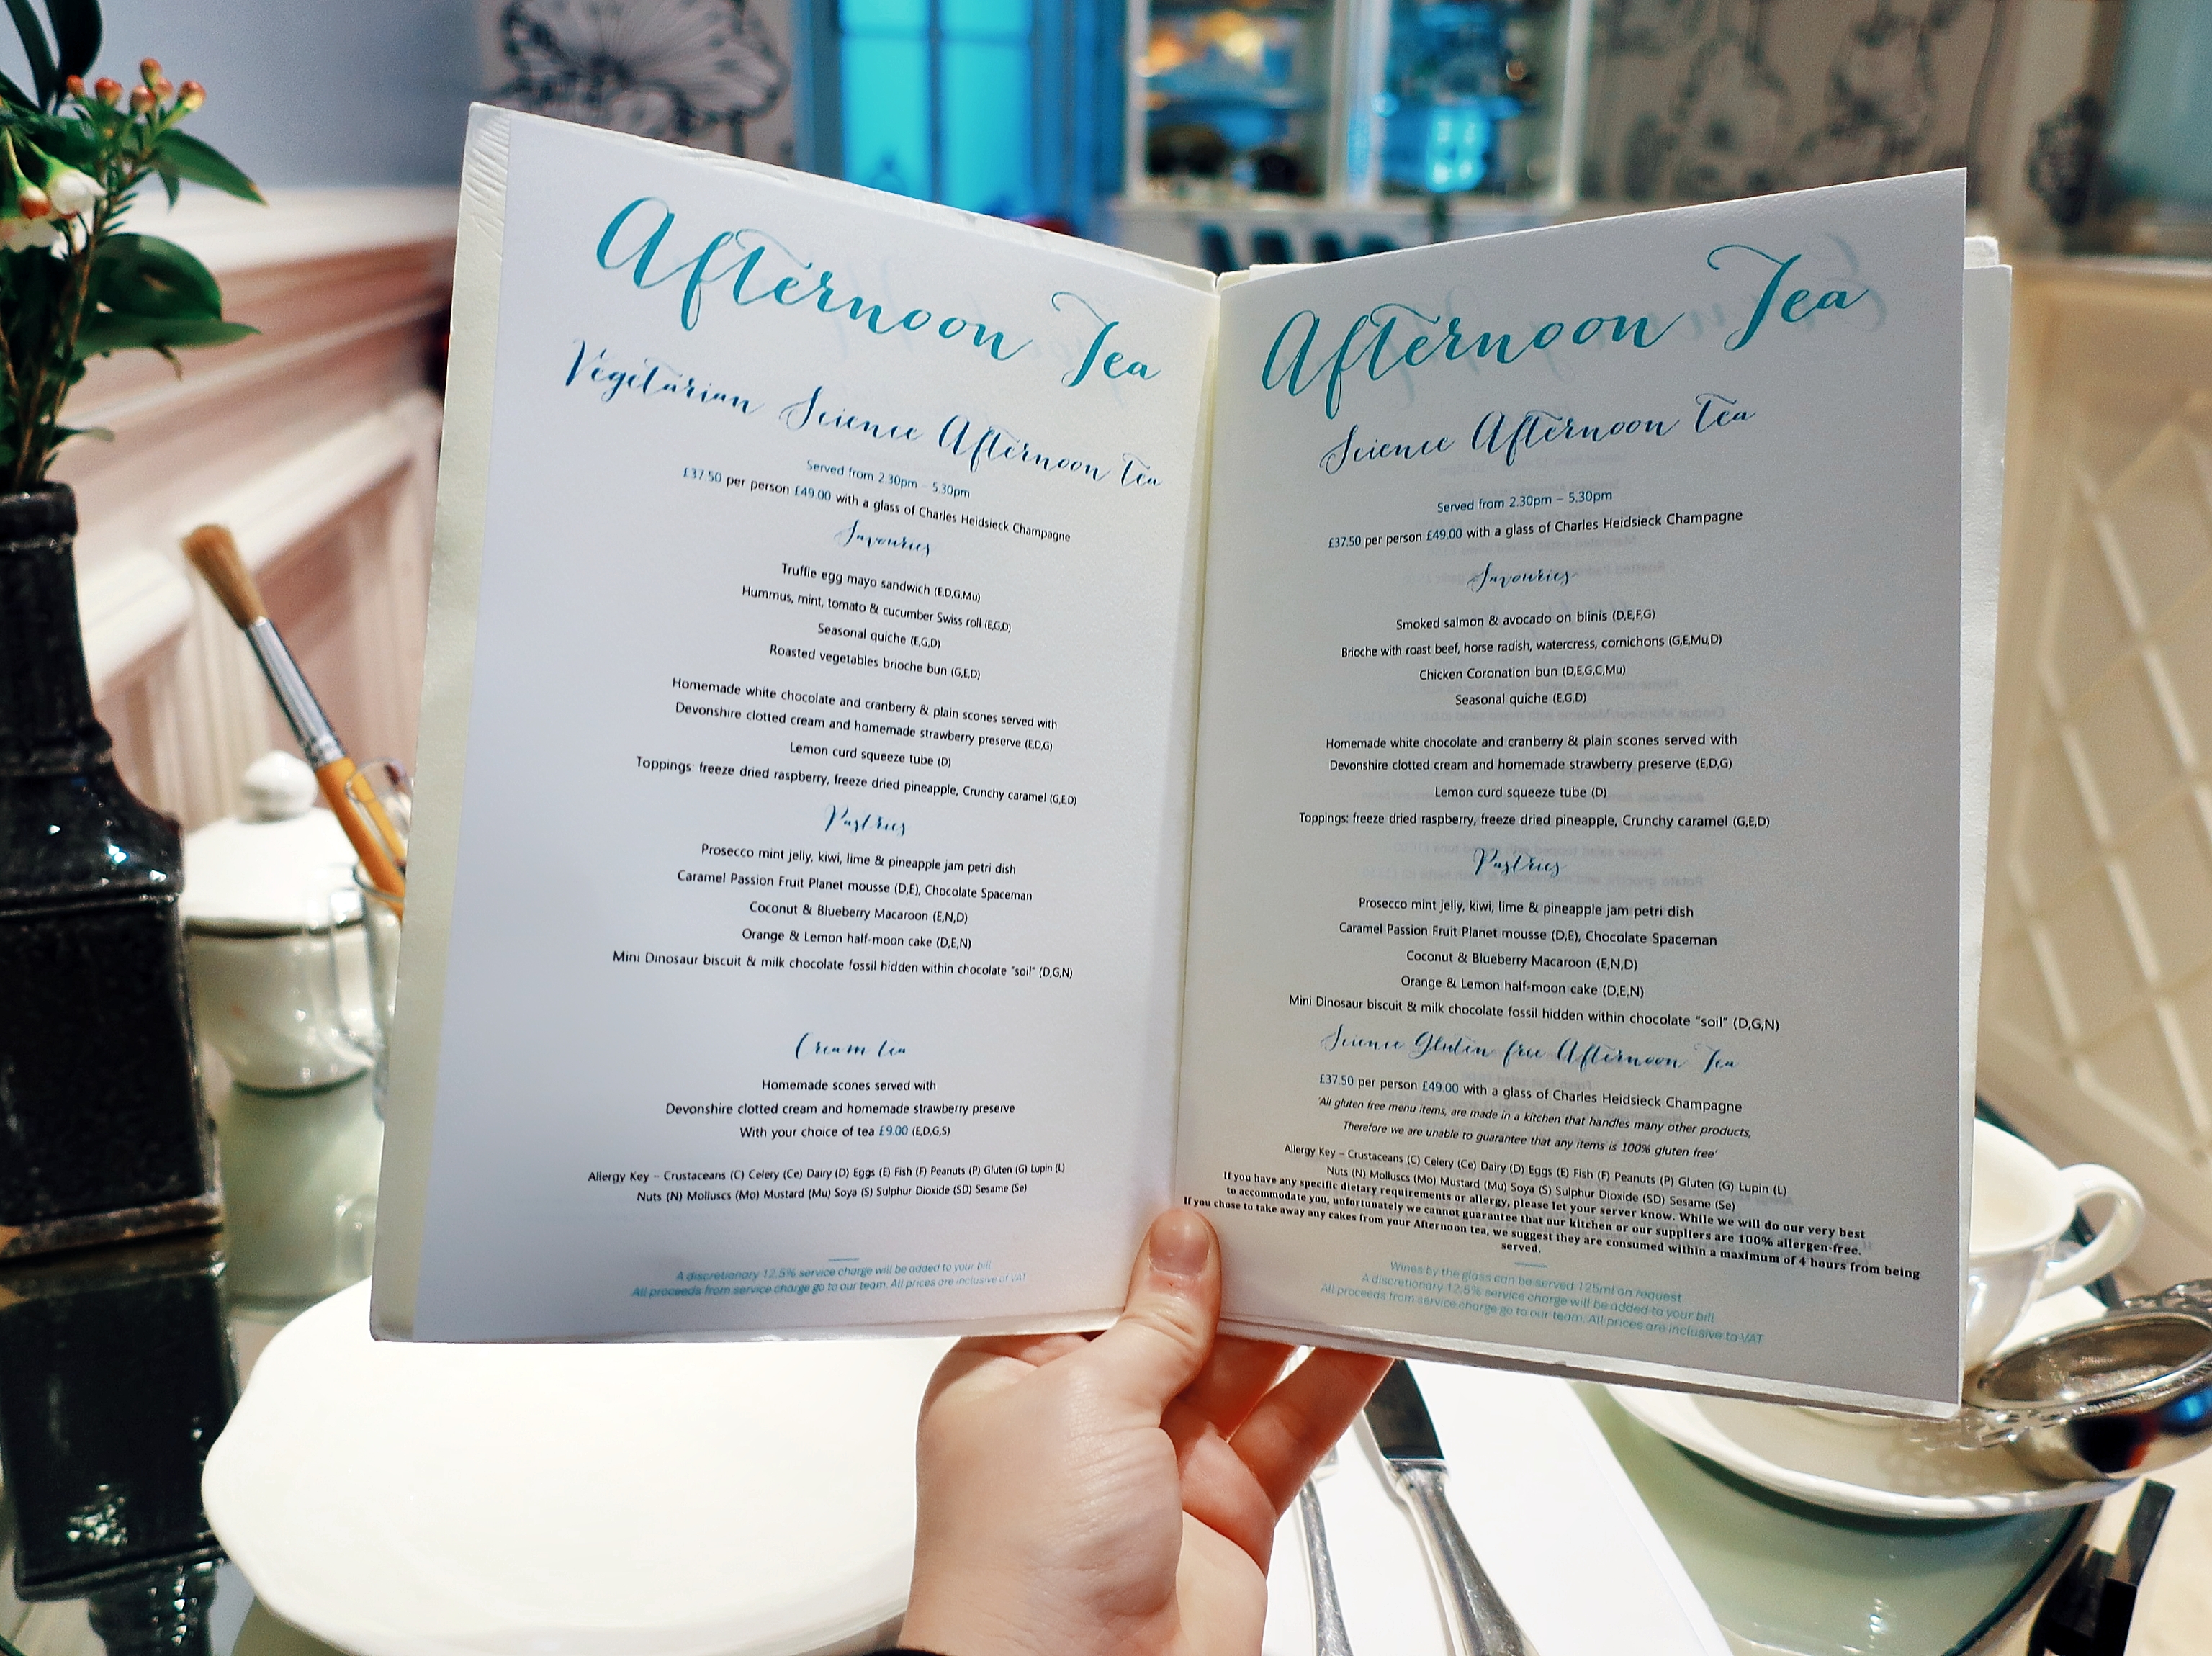 Afternoon Tea
Vegetarian Science Afternoon tea
Served from 2.30pm – 5.30pm
£37.50 per person £49.00 with a glass of Charles Heidsieck Champagne
Savouries
Truffle egg mayo sandwich (E,D,G,Mu)
Hummus, mint, tomato & cucumber Swiss roll (E,G,D)
Seasonal quiche (E,G,D)
Roasted vegetables brioche bun (G,E,D)
Homemade white chocolate and cranberry & plain scones served with
Devonshire clotted cream and homemade strawberry preserve (E,D,G)
Lemon curd squeeze tube (D)
Toppings: freeze dried raspberry, freeze dried pineapple, Crunchy caramel (G,E,D)
Pastries
Prosecco mint jelly, kiwi, lime & pineapple jam petri dish
Caramel Passion Fruit Planet mousse (D,E), Chocolate Spaceman
Coconut & Blueberry Macaroon (E,N,D)
Orange & Lemon half-moon cake (D,E,N)
Mini Dinosaur biscuit & milk chocolate fossil hidden within chocolate "soil" (D,G,N)
Cream tea
Homemade scones served with
Devonshire clotted cream and homemade strawberry preserve
With your choice of tea £9.00 (E,D,G,S)
Allergy Key – Crustaceans (C) Celery (Ce) Dairy (D) Eggs (E) Fish (F) Peanuts (P) Gluten (G) Lupin (L)
Nuts (N) Molluscs (Mo) Mustard (Mu) Soya (S) Sulphur Dioxide (SD) Sesame (Se)
A discretionary 12.5% service charge will be added to your bill
All proceeds from service charge go to our team. All prices are inclusive of VAT
Afternoon Tea
Science Afternoon tea
Served from 2.30pm – 5.30pm
£37.50 per person £49.00 with a glass of Charles Heidsieck Champagne
Savouries
Smoked salmon & avocado on blinis (D,E,F,G)
Brioche with roast beef, horse radish, watercress, cornichons (G,E,Mu,D)
Chicken Coronation bun (D,E,G,C,Mu)
Seasonal quiche (E,G,D)
Homemade white chocolate and cranberry & plain scones served with
Devonshire clotted cream and homemade strawberry preserve (E,D,G)
Lemon curd squeeze tube (D)
Toppings: freeze dried raspberry, freeze dried pineapple, Crunchy caramel (G,E,D)
Pastries
Prosecco mint jelly, kiwi, lime & pineapple jam petri dish
Caramel Passion Fruit Planet mousse (D,E), Chocolate Spaceman
Coconut & Blueberry Macaroon (E,N,D)
Orange & Lemon half-moon cake (D,E,N)
Mini Dinosaur biscuit & milk chocolate fossil hidden within chocolate "soil" (D,G,N)
Science Gluten free Afternoon Tea
£37.50 per person £49.00 with a glass of Charles Heidsieck Champagne
'All gluten free menu items, are made in a kitchen that handles many other products,
Therefore we are unable to guarantee that any items is 100% gluten free'
Allergy Key – Crustaceans (C) Celery (Ce) Dairy (D) Eggs (E) Fish (F) Peanuts (P) Gluten (G) Lupin (L)
Nuts (N) Molluscs (Mo) Mustard (Mu) Soya (S) Sulphur Dioxide (SD) Sesame (Se)
If you have any specific dietary requirements or allergy, please let your server know. While we will do our very best
to accommodate you, unfortunately we cannot guarantee that our kitchen or our suppliers are 100% allergen-free.
If you chose to take away any cakes from your Afternoon tea, we suggest they are consumed within a maximum of 4 hours from being
served.
Wines by the glass can be served 125ml on request
A discretionary 12.5% service charge will be added to your bill
All proceeds from service charge go to our team. All prices are inclusive to VAT